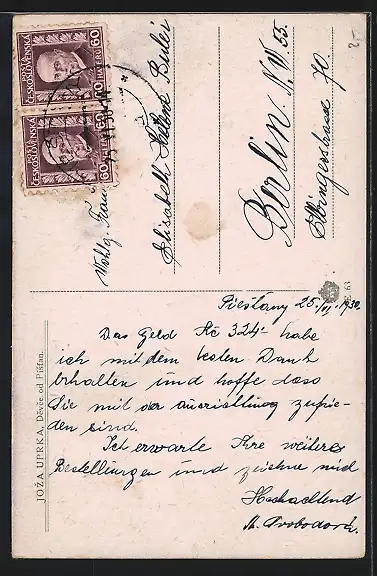 POŠTA
ČESKOSLOVENSKÁ
60 HALÉŘŮ 60
POŠTA
ČESKOSLOVENSKÁ
60 HALÉŘŮ 60
Wohlg. Frau
Elisabeth Helene
Berlin N.W 55.
70
JOŽA UPRKA, Děvče od Píšťan.
63
Piešťany 25./VI. 1930.
Das Geld Kč 324.- habe
ich mit dem besten Dank
erhalten und hoffe dass
Sie mit der ausristllung zufrie-
den sind.
Ich erwarte Ihre weiteres
Bestellungen und zeichne mich
Hochachtend
A. Svobodová.